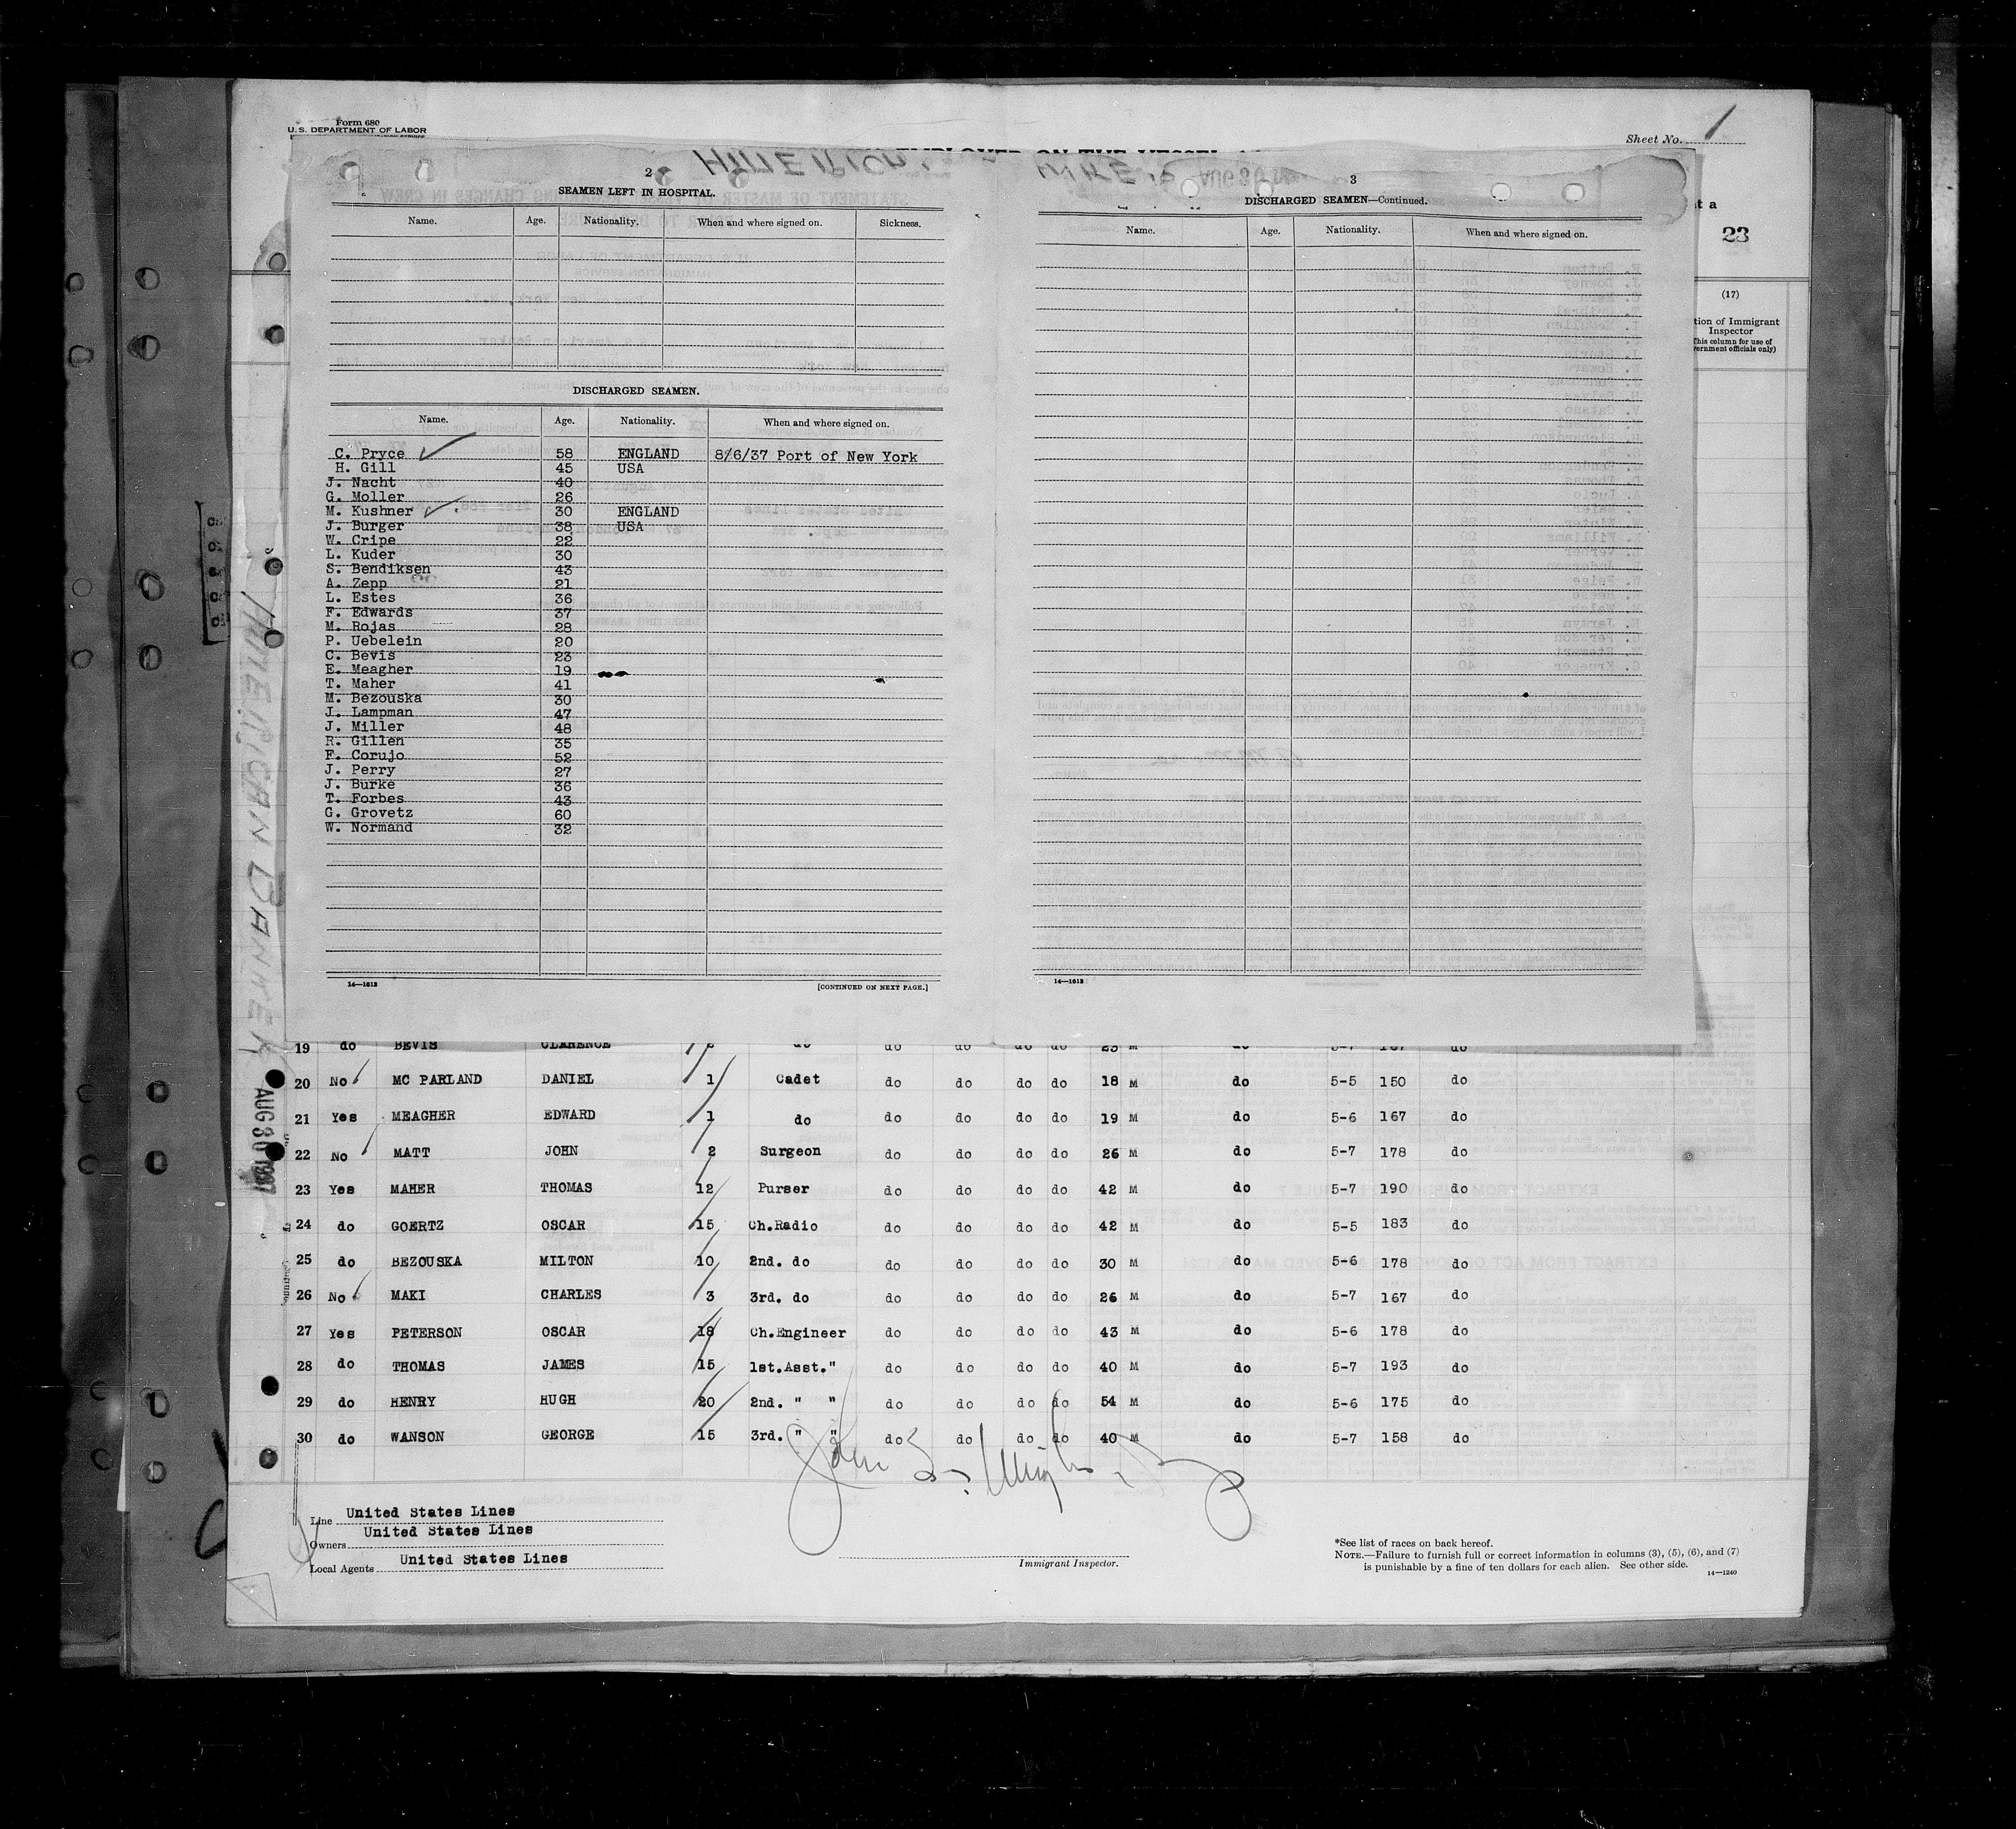 Form 680
U.S. DEPARTMENT OF LABOR
Sheet No. 1
2
SEAMEN LEFT IN HOSPITAL.
Name. Age. Nationality. When and where signed on. Sickness.
DISCHARGED SEAMEN.
Name. Age. Nationality. When and where signed on.
C. Pryce 58 ENGLAND 8/6/37 Port of New York
H. Gill 45 USA
J. Nacht 40
G. Moller 26
M. Kushner 30 ENGLAND
J. Burger 38 USA
W. Cripe 22
L. Kuder 30
S. Bendiksen 43
A. Zepp 21
L. Estes 36
F. Edwards 37
M. Rojas 28
P. Uebelein 20
C. Bevis 23
E. Meagher 19
T. Maher 41
M. Bezouska 30
J. Lampman 47
J. Miller 48
R. Gillen 35
F. Corujo 52
J. Perry 27
J. Burke 36
T. Forbes 43
G. Grovetz 60
W. Normand 32
14—1613 [CONTINUED ON NEXT PAGE.]
3
DISCHARGED SEAMEN—Continued.
Name. Age. Nationality. When and where signed on.
14—1613
23
(17)
tion of Immigrant
Inspector
his column for use of
vernment officials only)
AMERICAN BANKER
AUG 30 1937
19 do BEVIS CLARENCE do do do do do 23 M do 5-7 167 do
20 No MC PARLAND DANIEL 1 Cadet do do do do 18 M do 5-5 150 do
21 Yes MEAGHER EDWARD 1 do do do do do 19 M do 5-6 167 do
22 No MATT JOHN 2 Surgeon do do do do 26 M do 5-7 178 do
23 Yes MAHER THOMAS 12 Purser do do do do 42 M do 5-7 190 do
24 do GOERTZ OSCAR 15 Ch.Radio do do do do 42 M do 5-5 183 do
25 do BEZOUSKA MILTON 10 2nd. do do do do do 30 M do 5-6 178 do
26 No MAKI CHARLES 3 3rd. do do do do do 26 M do 5-7 167 do
27 Yes PETERSON OSCAR 18 Ch.Engineer do do do do 43 M do 5-6 178 do
28 do THOMAS JAMES 15 1st.Asst." do do do do 40 M do 5-7 193 do
29 do HENRY HUGH 20 2nd. " " do do do do 54 M do 5-6 175 do
30 do WANSON GEORGE 15 3rd. " " do do do do 40 M do 5-7 158 do
Line United States Lines
Owners United States Lines
Local Agents United States Lines
Immigrant Inspector.
*See list of races on back hereof.
NOTE.—Failure to furnish full or correct information in columns (3), (5), (6), and (7)
is punishable by a fine of ten dollars for each alien. See other side.
14—1240